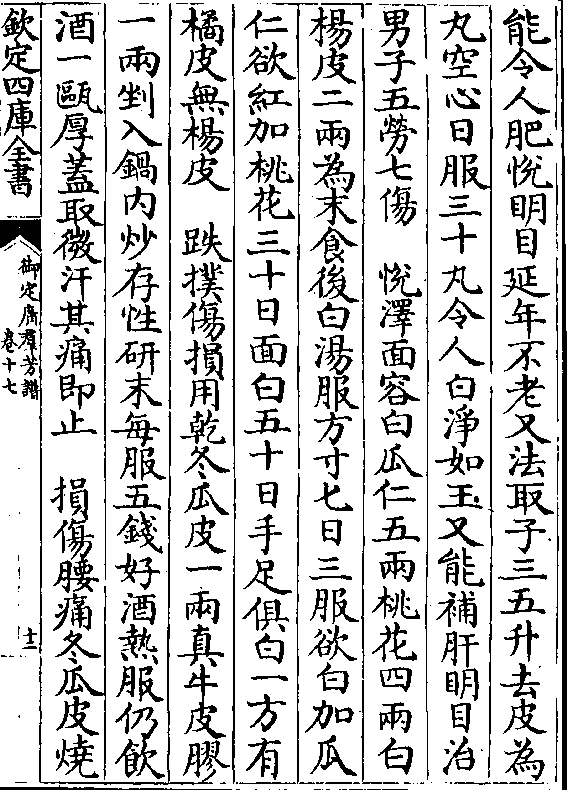 能令人肥悅明目延年不老又法取子三五升去皮為
丸空心日服三十丸令人白淨如玉又能補肝明目治
男子五勞七傷　悅澤面容白瓜仁五兩桃花四兩白
楊皮二兩為末食後白湯服方寸七日三服欲白加瓜
仁欲紅加桃花三十日面白五十日手足俱白一方有
橘皮無楊皮　跌撲傷損用乾冬瓜皮一兩真牛皮膠
一兩剉入鍋內炒存性研末每服五錢好酒熱服仍飲
酒一甌厚蓋取微汗其痛即止　損傷腰痛冬瓜皮燒
欽定四庫全書
御定廣羣芳譜
卷十七
十二